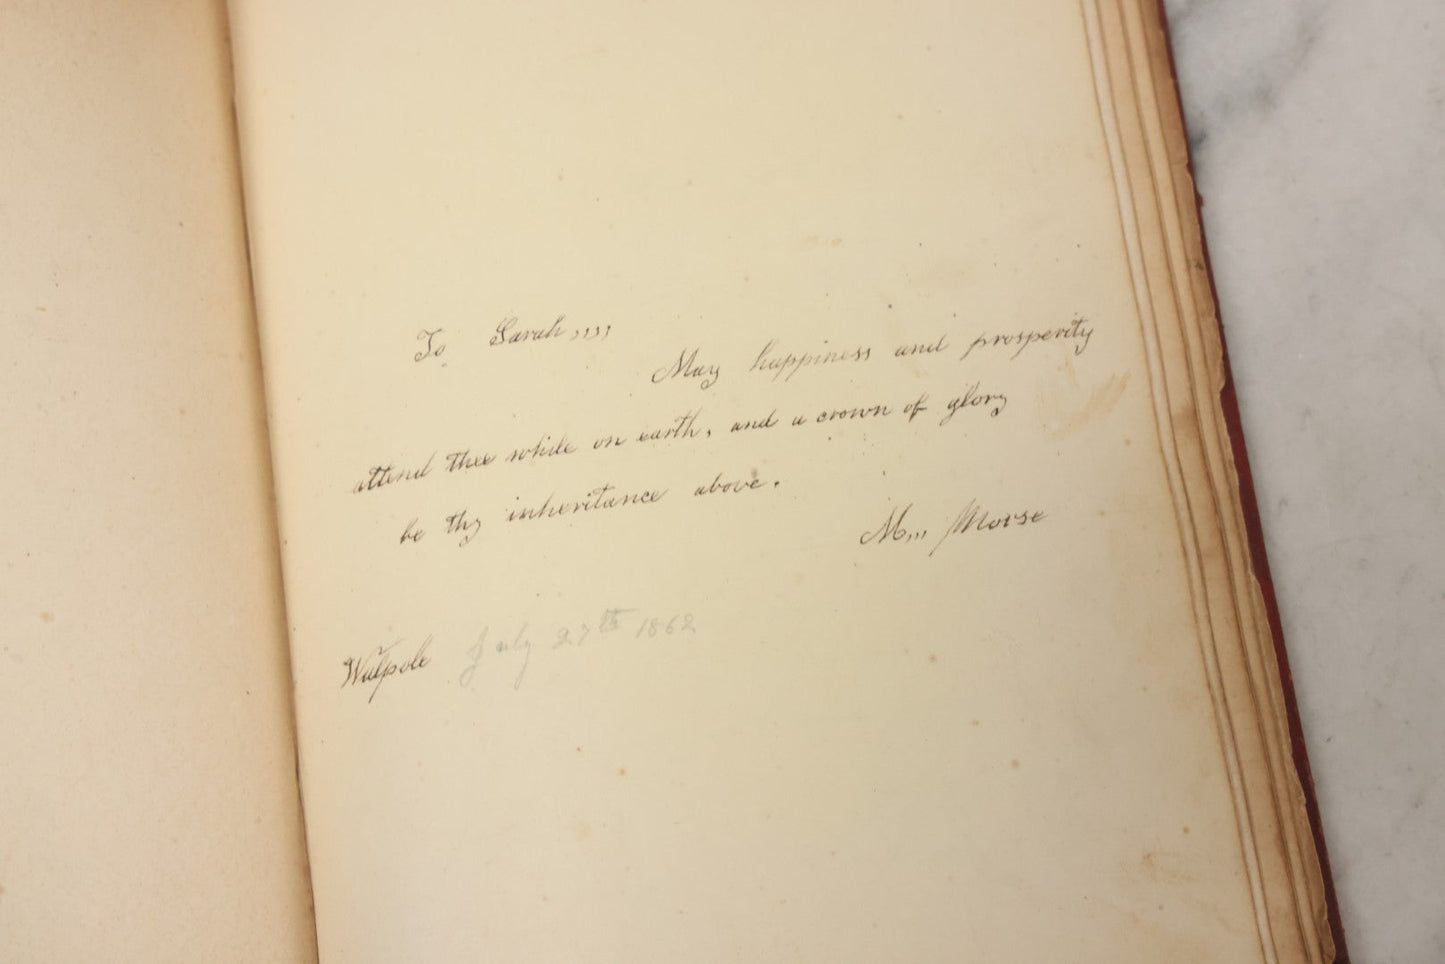 To Sarah,,,,
May happiness and prosperity
attend thee while on earth, and a crown of glory
be thy inheritance above.
M,,, Morse
Walpole July 27th 1862